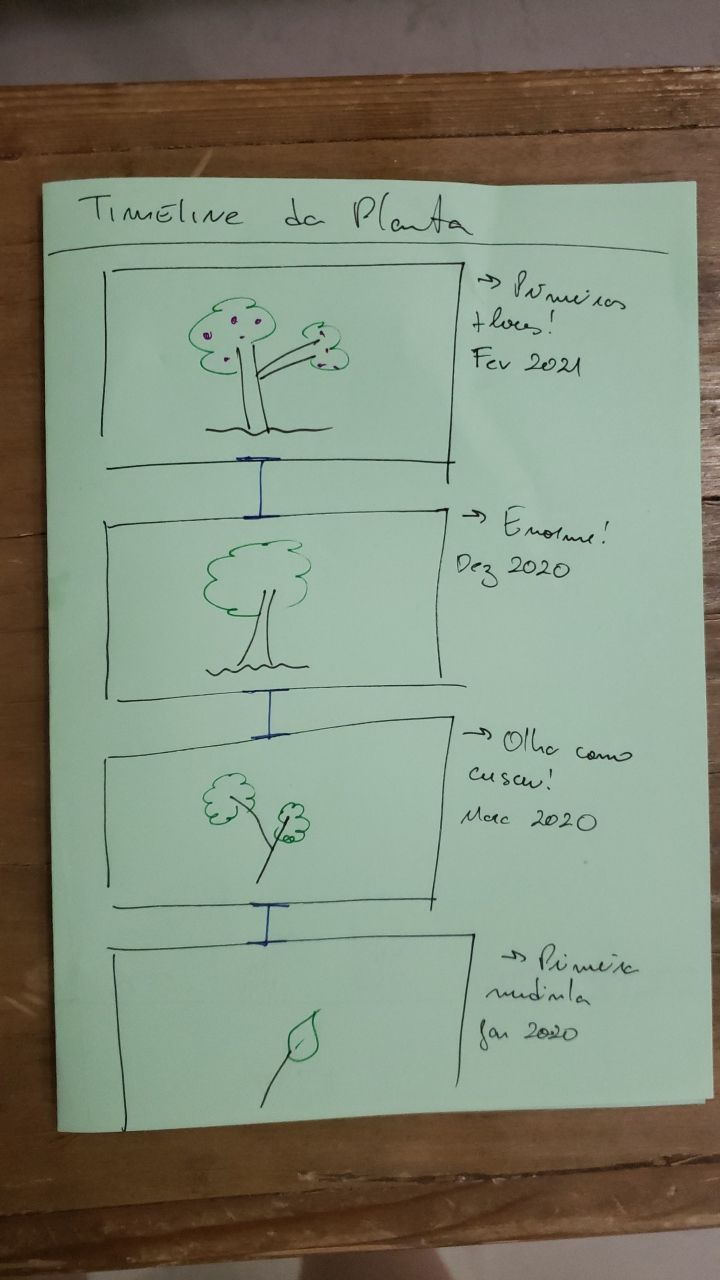 Timeline da Planta
→ Primeiras
flores!
Fev 2021
→ Enorme!
Dez 2020
→ Olha como
cresceu!
Març 2020
→ Primeira
mudinha
Jan 2020